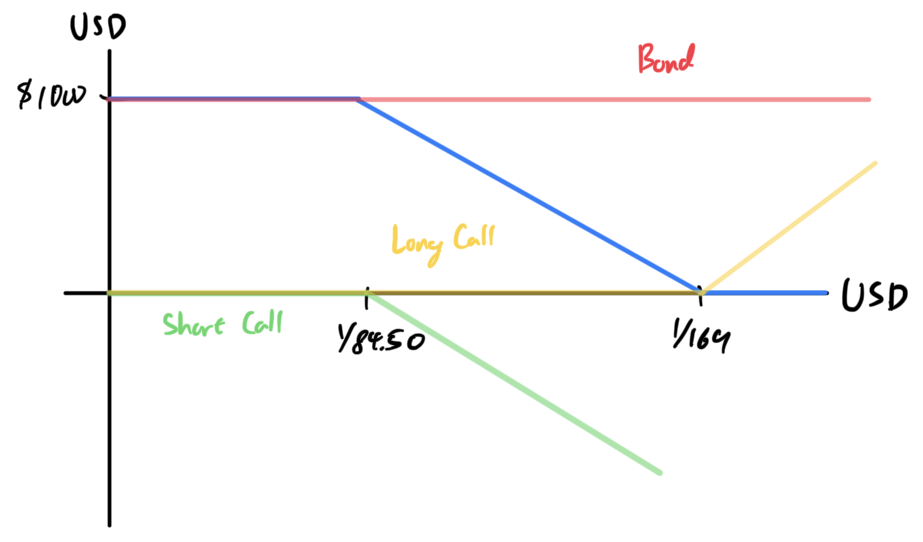 USD
Bond
$1000
Long Call
USD
Short Call
1/84.50
1/169